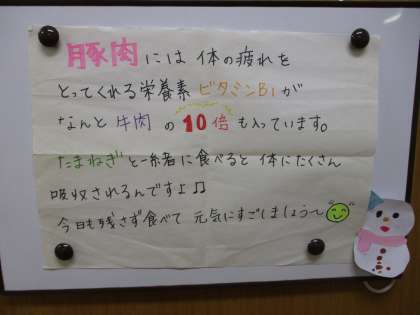 豚肉には体の疲れを
とってくれる栄養素ビタミンB1が
なんと牛肉の10倍も入っています。
たまねぎと一緒に食べると体にたくさん
吸収されるんですよ♫
今日も残さず食べて元気にすごしましょう～